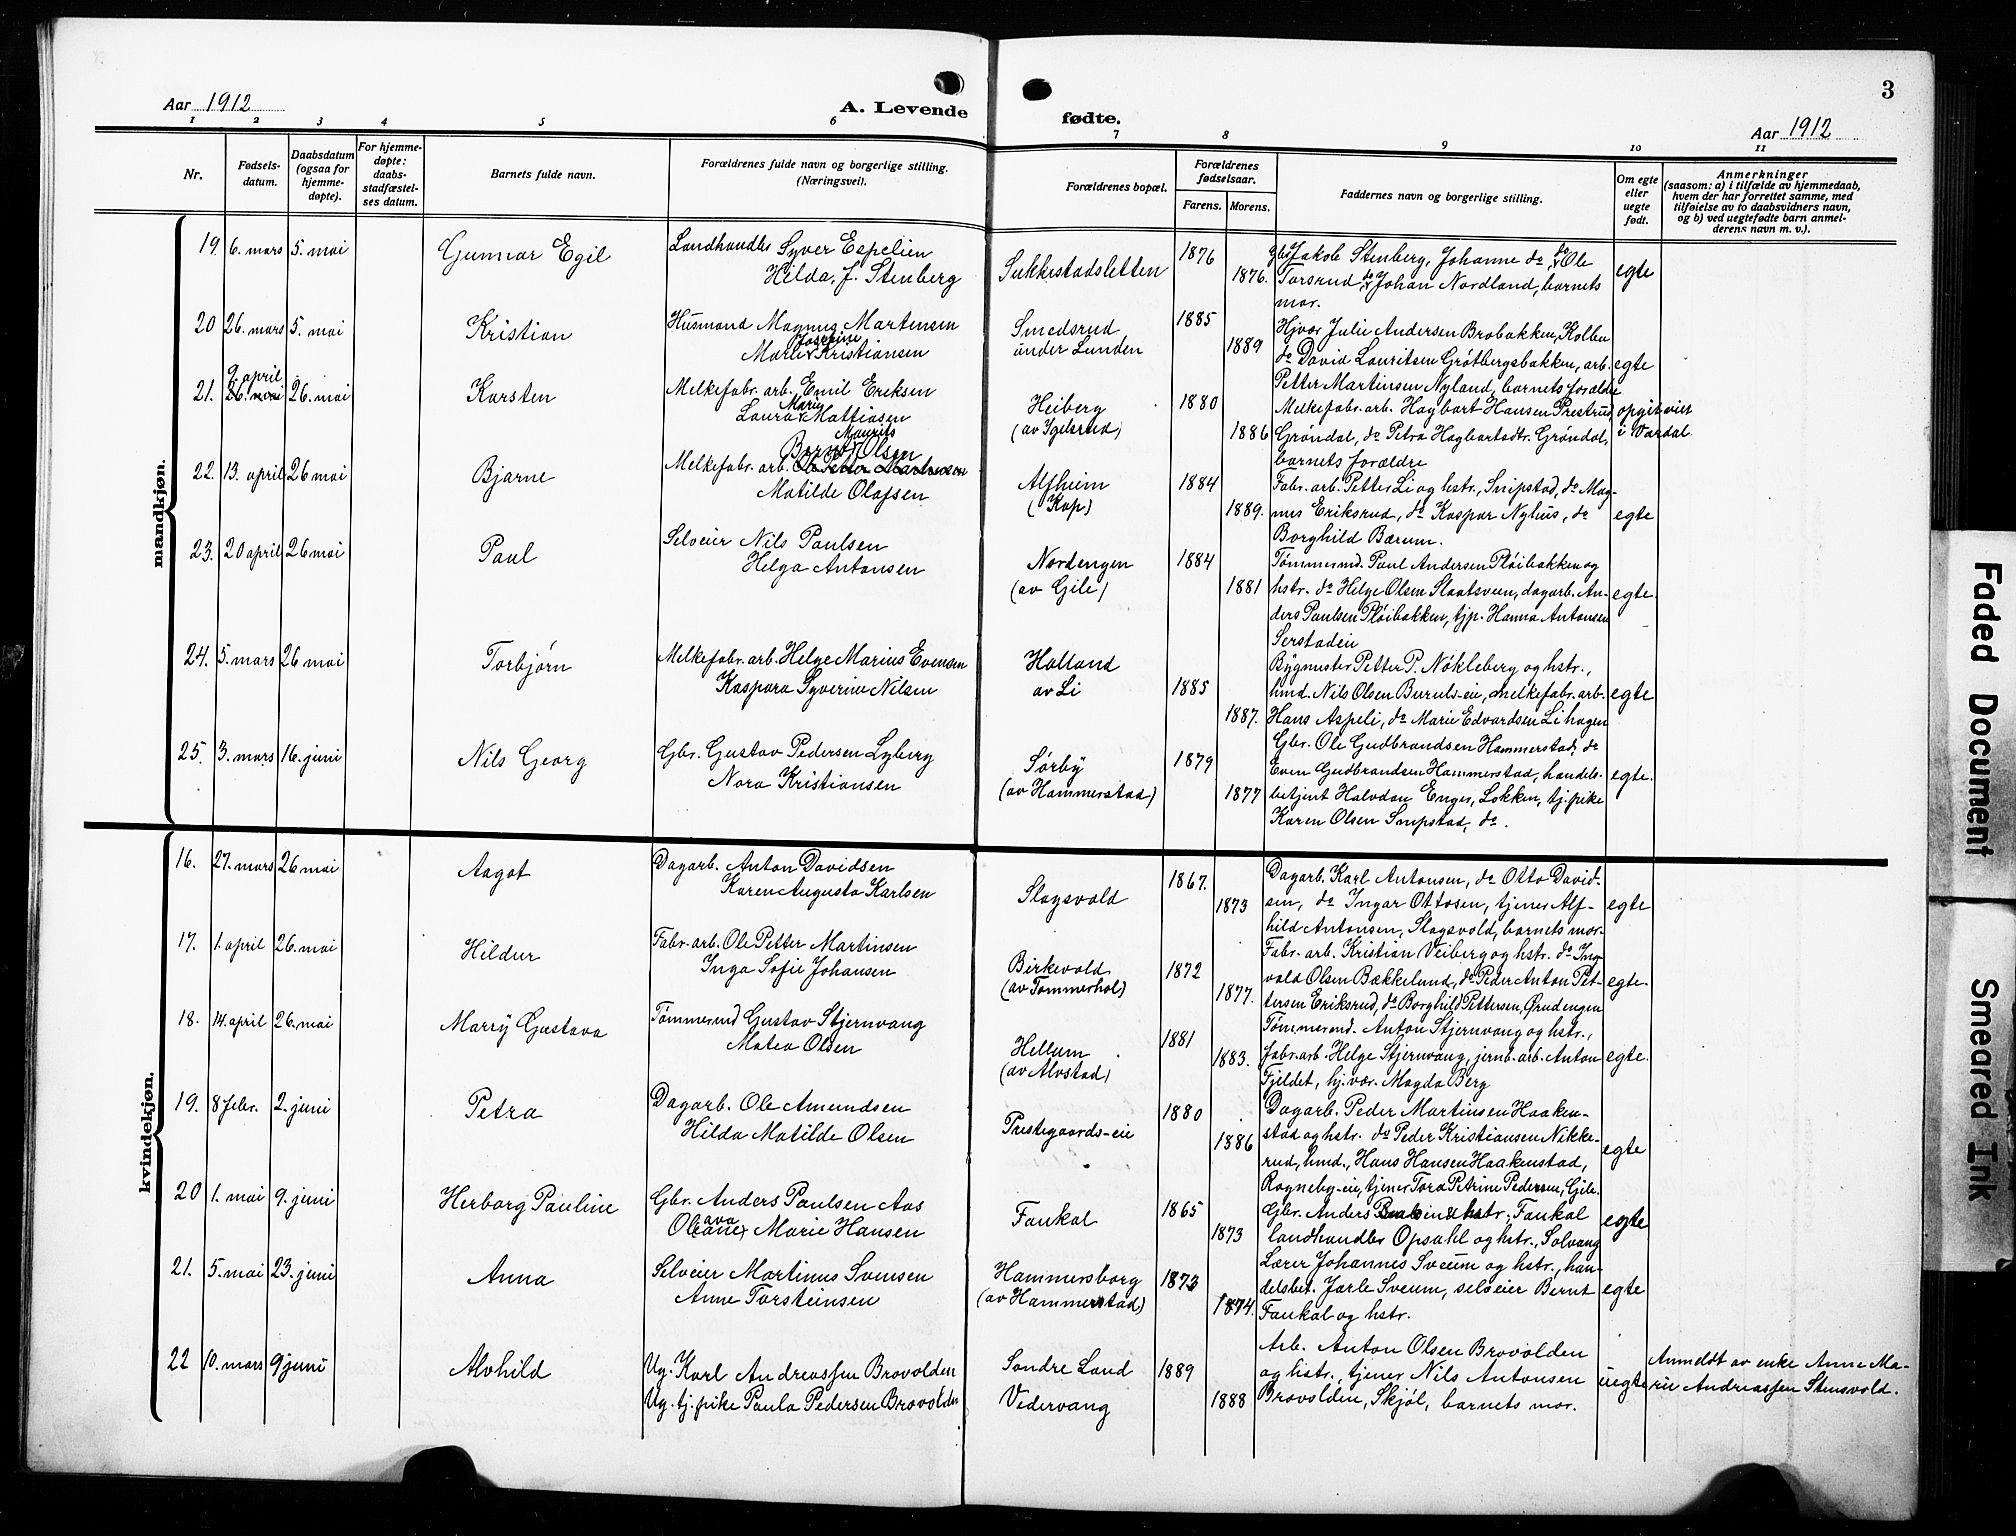 3
Aar 1912
A. Levende
fødte.
Aar 1912
1 2 3 4 5 6 7 8 9 10 11
Nr.
Fødsels-
datum.
Daabsdatum
(ogsaa for
hjemme-
døpte).
For hjemme-
døpte:
daabs-
stadfæstel-
ses datum.
Barnets fulde navn.
Forældrenes fulde navn og borgerlige stilling.
(Næringsvei).
Forældrenes bopæl.
Forældrenes
fødselsaar.
Farens. Morens.
Faddernes navn og borgerlige stilling.
Om egte
eller
uegte
født.
Anmerkninger
(saasom: a) i tilfælde av hjemmedaab,
hvem der har forrettet samme, med
tilføielse av to daabsvidners navn,
og b) ved uegtefødte barn anmel-
derens navn m. v.).
mandkjøn.
19. 6. mars 5. mai Gunnar Egil
Landhandler Syver Espelien
Hilda, f. Stenberg
Sukkestadsletten
1876
1876.
Gbr Jakob Stenberg, Johanne do, do Ole
Torsrud do, Johan Nordland, barnets
mor.
egte
20 26. mars 5. mai Kristian
Husmand Magnus Martensen
Marie Josefine Kristiansen
Smedsrud
under Lunden
1885
1889
Hjvær Julie Andersen Brobakken, Kolbu
do David Lauritsen Grøtbergsbakken, arb.
Petter Martinsen Nyland, barnets forældre
egte
21. 9 april 26. mai 26. mai Karsten
Melkefabr. arb. Emil Eriksen
Laura Marie Mattiasen
Heiberg
(av Igelsrud)
1880
1886
Melkefabr. arb. Hagbart Hansen Prestrud,
Grøndal, do Petra Hagbartsdtr. Grøndal,
barnets forældre
opgit viet
i Vardal.
22. 13. april 26 mai Bjarne
Bernt Maurits Olsen
Melkefabr. arb. Ole Petter Martinsen
Matilde Olafsen
Alfheim
(Kap)
1884
1889.
Fabr. arb. Petter Li og hstr., Snipstad, do Mag-
nus Eriksrud, do Kaspar Nyhus, do
Borghild Bærum.
egte
23. 20 april 26 mai Paul
Selveier Nils Paulsen
Helga Antonsen
Nordengen
(av Gile)
1884
1881
Tømmermd. Paul Andersen Pløibakken og
hstr. do Helge Olsen Slaatsveen, dagarb. An-
ders Paulsen Pløibakken, tjp. Hanna Antonsen
Serstadeie
egte.
24. 5. mars 26 mai Torbjørn
Melkefabr. arb. Helge Marius Evensen
Kaspara Syverine Nilsen
Holland
av Li
1885
1887.
Bygmester Petter P. Nøkleberg og hstr.,
hmd. Nils Olsen Buruls-eie, melkefabr. arb.
Hans Aspeli, do Marie Edvardsen Lihagen
egte
25. 3. mars 16. juni Nils Georg
Gbr. Gustav Pedersen Lyberg
Nora Kristiansen
Sørby
(av Hammerstad)
1879
1877
Gbr. Ole Gudbrandsen Hammerstad, do
Even Gudbrandsen Hammerstad, handels-
betjent Halvdan Enger, Løkken, tj. pike
Karen Olsen Snipstad, do.
egte.
kvindekjøn.
16. 27. mars 26 mai Aagot
Dagarb. Anton Davidsen
Karen Augusta Karlsen
Slagsvold
1867.
1873
Dagarb. Karl Antonsen, do Otto David-
sen, do Ingar Ottosen, tjener Alf-
hild Antonsen, Slagsvold, barnets mor.
egte
17. 1. april 26. mai Hildur
Fabr. arb. Ole Petter Martinsen
Inga Sofie Johansen
Birkevold
(av Tømmerhol)
1872
1877.
Fabr. arb. Kristian Veiberg og hstr. do Ing-
vald Olsen Bækkelund, do Peder Anton Pet-
tersen Eriksrud, do Borghild Pettersen, Grudengen
egte.
18. 14. april 26. mai Marry Gustava
Tømmermd Gustav Stjernvang
Matea Olsen
Hellum
(av Alvstad)
1881
1883.
Tømmermd. Anton Stjernvang og hstr.,
fabr. arb. Helge Stjernvang, jernb. arb. Anton
Fjeldet, hj. vær. Magda Berg
egte.
19. 8 febr. 2. juni Petra
Dagarb. Ole Amundsen
Hilda Matilde Olsen
Prestegaards-eie
1880
1886
Dagarb. Peder Martinsen Haaken-
stad og hstr. do Peder Kristiansen Nikke-
rud, hmd., Hans Hansen Haakenstad,
Rogneby-eie, tjener Tora Petrine Pedersen, Gile.
egte
20 1. mai 9. juni Herborg Pauline
Gbr. Anders Paulsen Aas
Oleane Marie Hansen
Faukal
1865
1873
Gbr. Anders Paulsen & hstr., Faukal
landhandler Opsahl og hstr., Solvang
egte
21. 5. mai 23. juni Anna
Selveier Martinus Svensen
Anne Torsteinsen
Hammersborg
(av Hammerstad)
1873
1874.
Lærer Johannes Sveum og hstr., han-
delsbet. Jarle Sveum, selveier Bernt
Faukal og hstr.
egte
22 10. mars 9 juni Alvhild
Ug. Karl Andreassen Brovolden
Ug. tj. pike Paula Pedersen Brovolden
Søndre Land
Vedervang
1889
1888
Arb. Anton Olsen Brovolden
og hstr., tjener Nils Antonsen
Brovolden, Skjøl, barnets mor.
uegte
Anmeldt av enke Anne Ma-
rie Andreassen Stensvold.
Faded Document
Smeared Ink